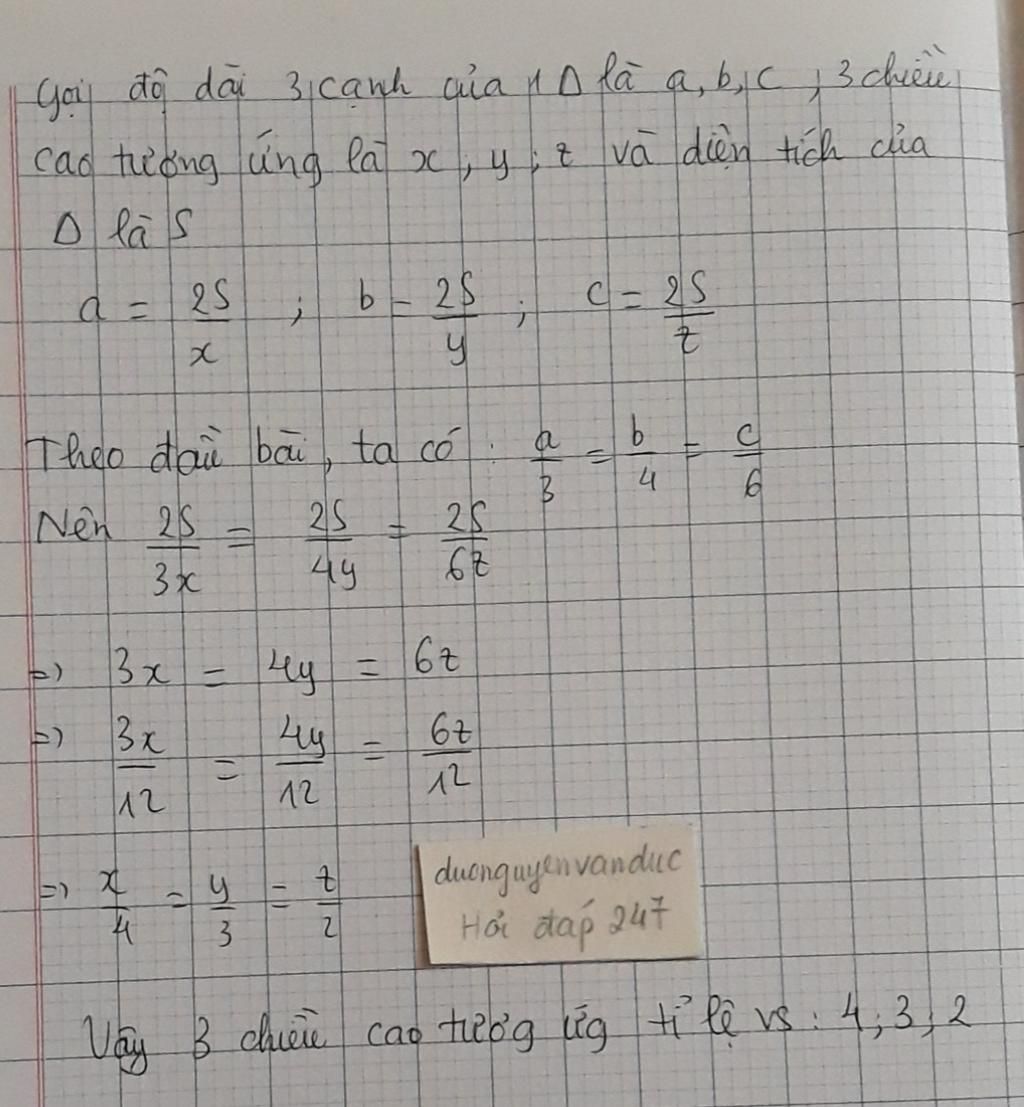 Gọi độ dài 3 cạnh của 1 Δ là a, b, c, 3 chiều
cao tương ứng là x, y, z và diện tích của
Δ là S
a = 2S/x ; b = 2S/y ; c = 2S/z
Theo đầu bài, ta có : a/3 = b/4 = c/6
Nên 2S/3x = 2S/4y = 2S/6z
=> 3x = 4y = 6z
=> 3x/12 = 4y/12 = 6z/12
=> x/4 = y/3 = z/2
duonguyenvanduc
Hỏi đáp 247
Vậy 3 chiều cao tương ứg tỉ lệ vs : 4; 3; 2